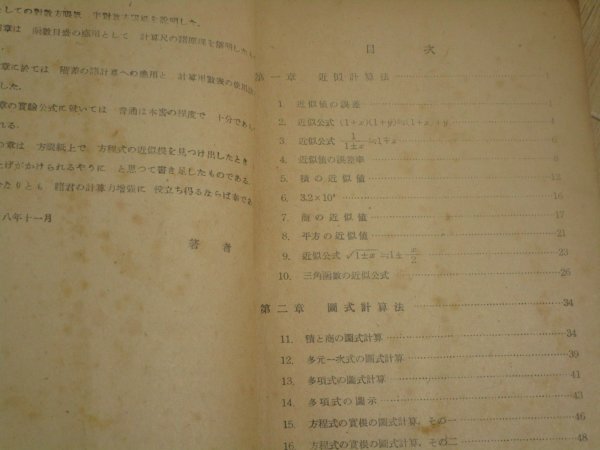 しての對數方眼紙 半對數方眼紙を説明した。
章は 函數目盛の應用として 計算尺の諸原理を
章に於ては 階差の諸計算への應用と 計算用數表の使用
した。
章の實驗公式に就いては 普通は本書の程度で 十分であ
れる。
の章は 方眼紙上で 方程式の近似根を見つけ出したとき
上げがかけられるやうに と思つて書き足したものである。
なりとも 諸君の計算力增强に 役立ち得るならば幸であ
八年十一月
著者
目次
第一章 近似計算法 1
1. 近似値の誤差 1
2. 近似公式 (1+x)(1+y)≒1+x+y 4
3. 近似公式 1/(1±x)≒1∓x 6
4. 近似値の誤差率 8
5. 積の近似値 12
6. 3.2×10ⁿ 16
7. 商の近似値 17
8. 平方の近似値 21
9. 近似公式 √1±x≒1±x/2 23
10. 三角函數の近似公式 26
第二章 圖式計算法 34
11. 積と商の圖式計算 34
12. 多元一次式の圖式計算 39
13. 多項式の圖式計算 41
14. 多項式の圖示 43
15. 方程式の實根の圖式計算，その一 46
16. 方程式の實根の圖式計算，その二 48